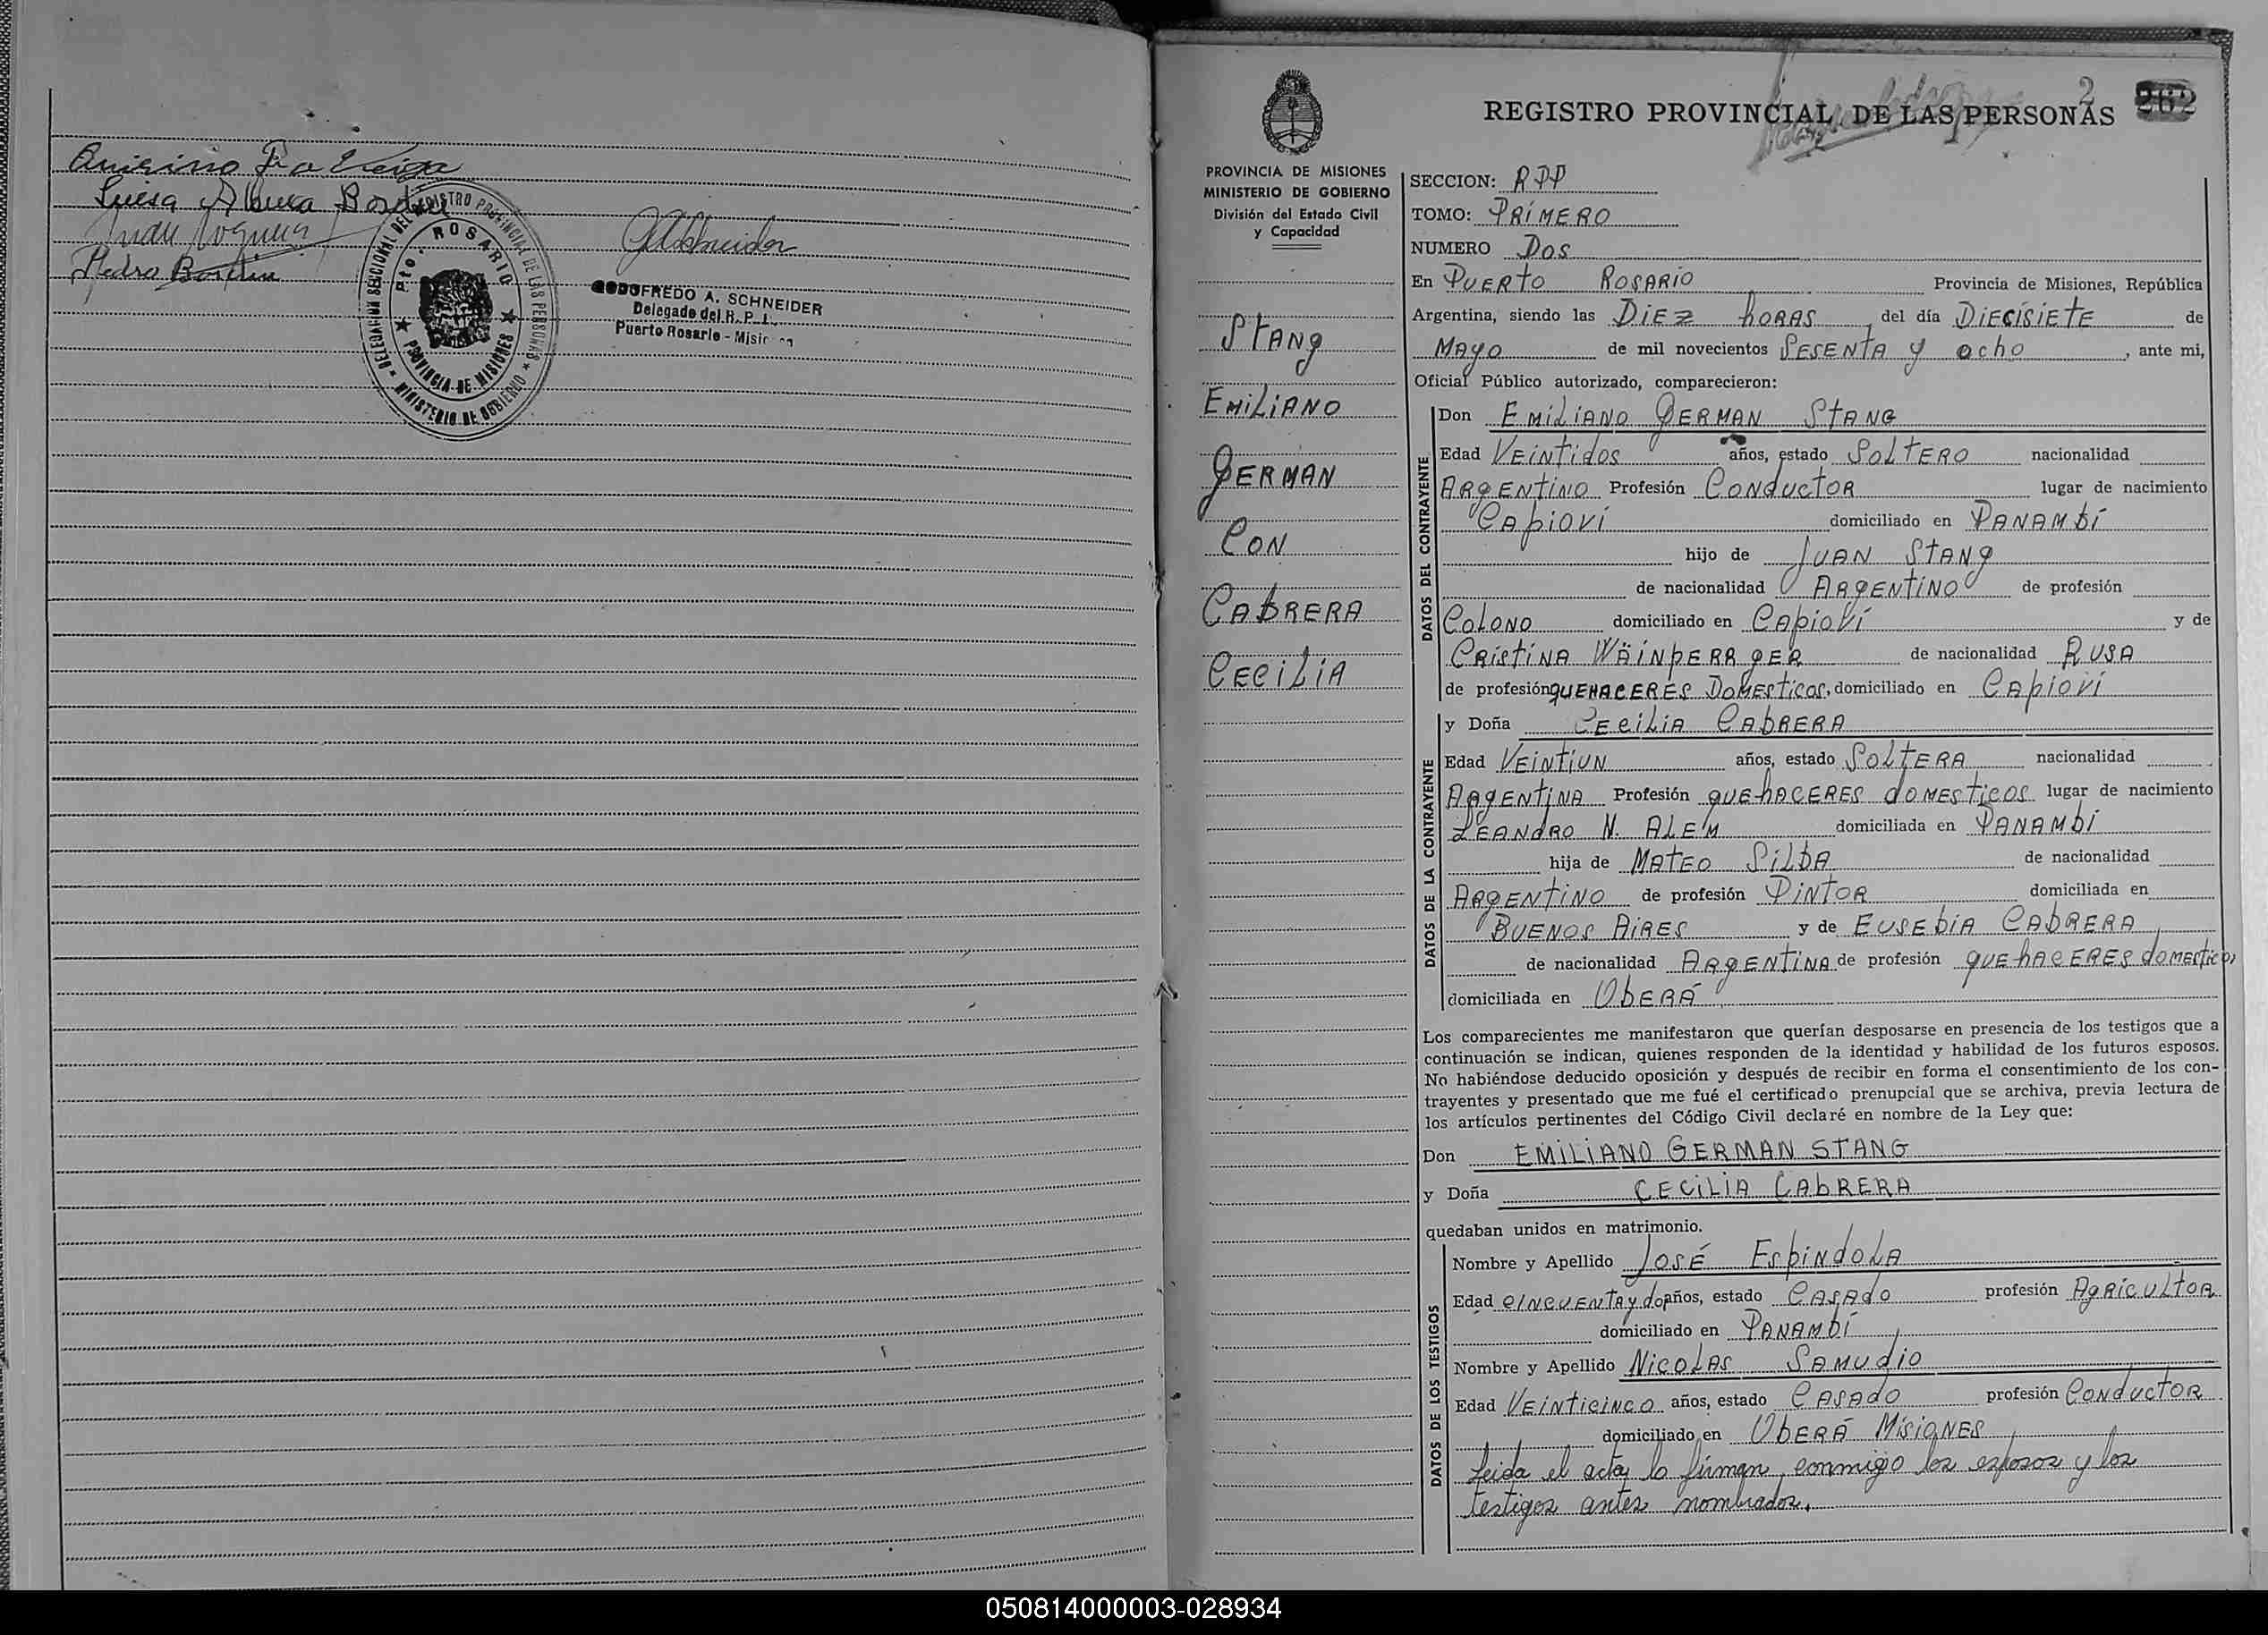 Luisa
Pedro
DELEGACION SECCIONAL DEL REGISTRO PROVINCIAL DE LAS PERSONAS
Pto. ROSARIO
PROVINCIA DE MISIONES
MINISTERIO DE GOBIERNO
GODOFREDO A. SCHNEIDER
Delegado del R. P. 
Puerto Rosario - Misiones
REGISTRO PROVINCIAL DE LAS PERSONAS 2 262
PROVINCIA DE MISIONES
MINISTERIO DE GOBIERNO
División del Estado Civil
y Capacidad
STANG
EMILIANO
GERMAN
CON
CABRERA
CECILIA
SECCION: RPP
TOMO: PRIMERO
NUMERO DOS
En PUERTO ROSARIO Provincia de Misiones, República
Argentina, siendo las DIEZ HORAS del día DIECISIETE de
MAYO de mil novecientos SESENTA y ocho, ante mi,
Oficial Público autorizado, comparecieron:
DATOS DEL CONTRAYENTE
Don EMILIANO GERMAN STANG
Edad VEINTIDOS años, estado SOLTERO nacionalidad
ARGENTINO Profesión CONDUCTOR lugar de nacimiento
CAPIOVÍ domiciliado en PANAMBÍ
hijo de JUAN STANG
de nacionalidad ARGENTINO de profesión
COLONO domiciliado en CAPIOVÍ y de
CRISTINA WÄINPERRGER de nacionalidad RUSA
de profesión QUEHACERES DOMESTICOS, domiciliado en CAPIOVÍ
DATOS DE LA CONTRAYENTE
y Doña CECILIA CABRERA
Edad VEINTIUN años, estado SOLTERA nacionalidad
ARGENTINA Profesión QUEHACERES DOMESTICOS lugar de nacimiento
LEANDRO N. ALEM domiciliada en PANAMBÍ
hija de MATEO SILBA de nacionalidad
ARGENTINO de profesión PINTOR domiciliada en
BUENOS AIRES y de EUSEBIA CABRERA
de nacionalidad ARGENTINA de profesión QUEHACERES DOMESTICOS
domiciliada en OBERÁ
Los comparecientes me manifestaron que querían desposarse en presencia de los testigos que a
continuación se indican, quienes responden de la identidad y habilidad de los futuros esposos.
No habiéndose deducido oposición y después de recibir en forma el consentimiento de los con-
trayentes y presentado que me fué el certificado prenupcial que se archiva, previa lectura de
los artículos pertinentes del Código Civil declaré en nombre de la Ley que:
Don EMILIANO GERMAN STANG
y Doña CECILIA CABRERA
quedaban unidos en matrimonio.
DATOS DE LOS TESTIGOS
Nombre y Apellido JOSÉ ESPINDOLA
Edad CINCUENTA y dos años, estado CASADO profesión AGRICULTOR
domiciliado en PANAMBÍ
Nombre y Apellido NICOLAS SAMUDIO
Edad VEINTICINCO años, estado CASADO profesión CONDUCTOR
domiciliado en OBERÁ MISIONES
Leida el acta, la firman, conmigo los esposos y los
testigos antes nombrados.
050814000003-028934